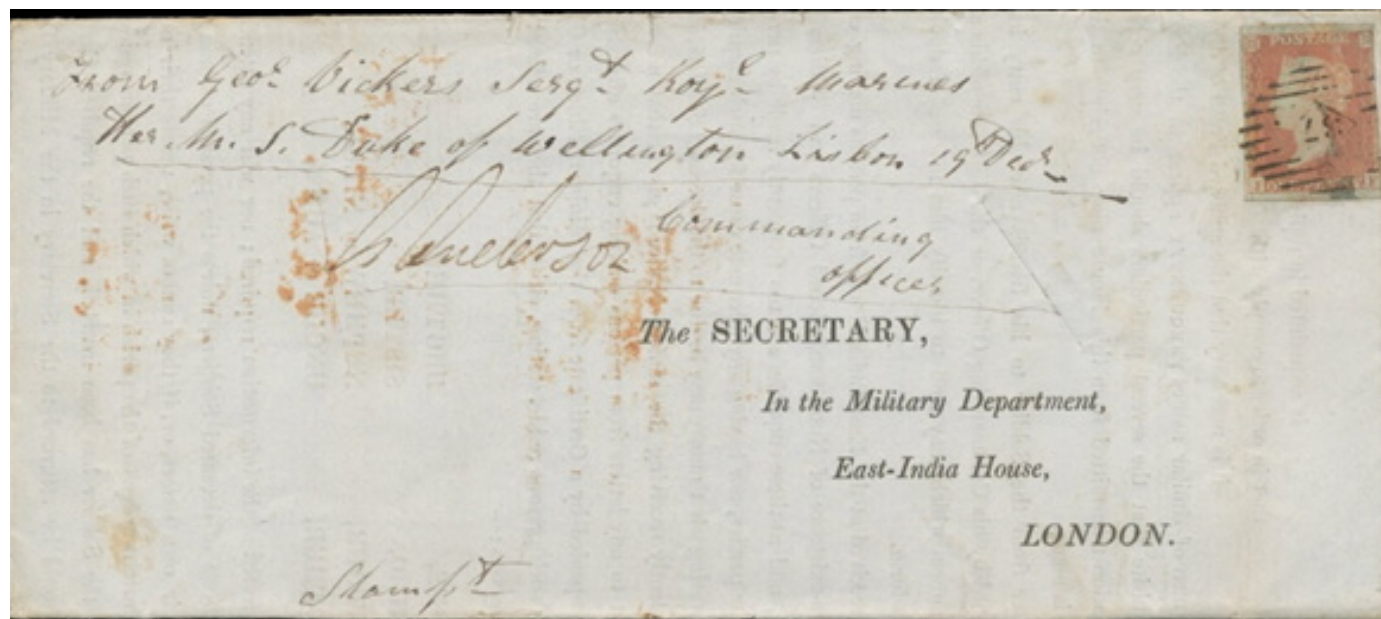 From Geo.e Vickers Serg.t Roy.l Marines
Her M. S. Duke of Wellington Lisbon 19th Dec.r
Commanding
officer
The SECRETARY,
In the Military Department,
East-India House,
LONDON.
Stamp.t
POSTAGE